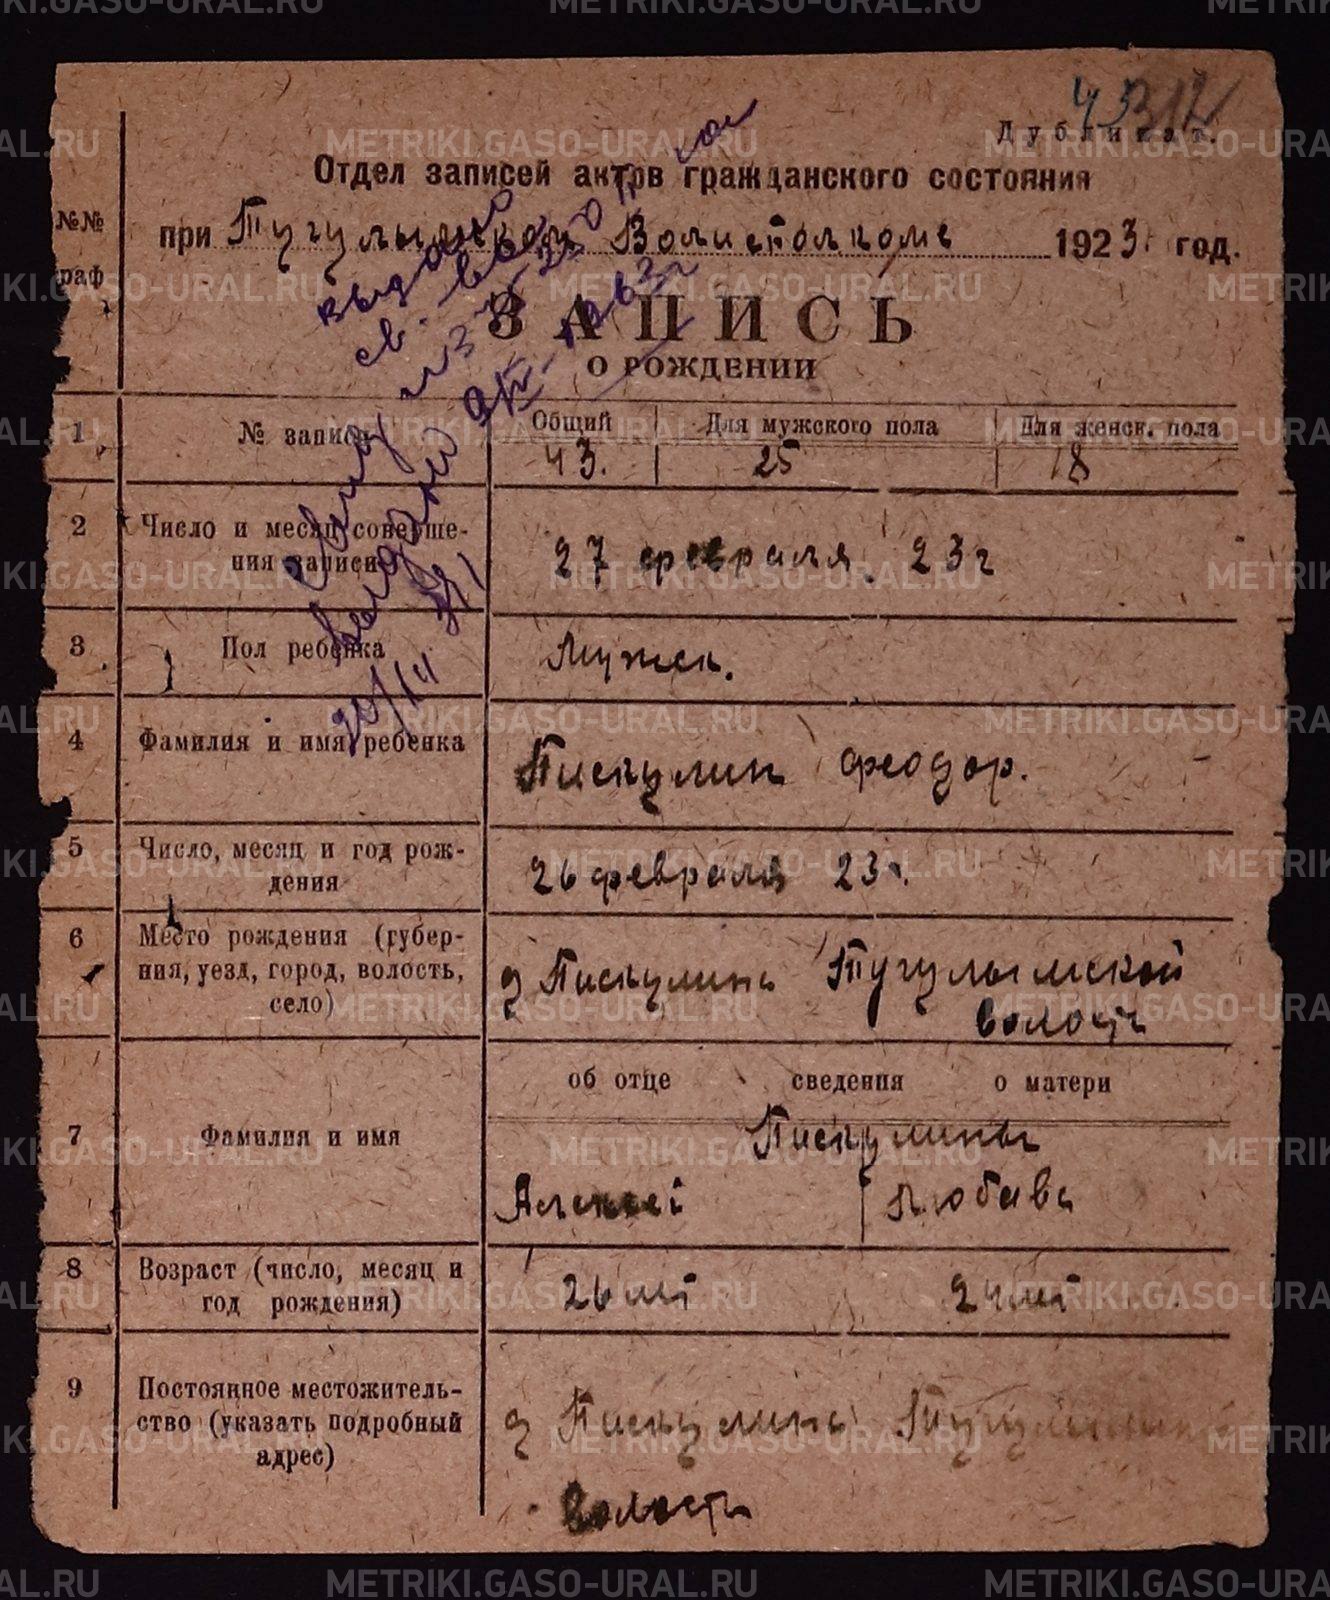 43
312
Дубликат.
Отдел записей актов гражданского состояния
при Тугулымском Волисполкоме 1923 год.
№№ граф
ЗАПИСЬ
О РОЖДЕНИИ
выдано
св.
1 № записи Общий Для мужского пола Для женск. пола
43. 25 18
2 Число и месяц соверше-
ния записи 27 февраля. 23 г
3 Пол ребенка Мужск.
4 Фамилия и имя ребенка Пискулин Феодор.
5 Число, месяц и год рож-
дения 26 февраля 23 г.
6 Место рождения (губер-
ния, уезд, город, волость,
село) д Пискулина Тугулымской
волости
об отце сведения о матери
7 Фамилия и имя Пискулины
Алексей Любава
8 Возраст (число, месяц и
год рождения) 26 лет 24 лет
9 Постоянное местожитель-
ство (указать подробный
адрес) д Пискулина Тугулымской
волости
METRIKI.GASO-URAL.RU